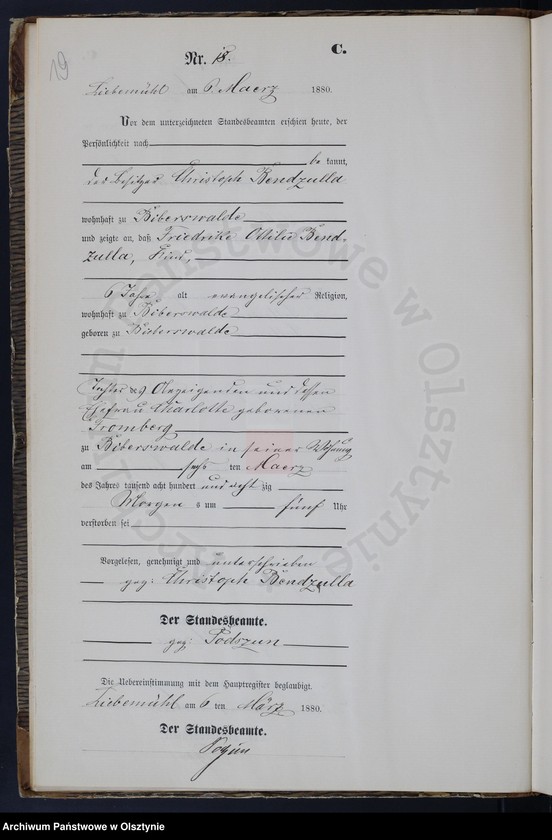 19
C.
Nr. 18.
Liebemühl am 6 Maerz 1880.
Vor dem unterzeichneten Standesbeamten erschien heute, der
Persönlichkeit nach
bekannt,
der Besitzer Christoph Bendzulla
wohnhaft zu Biberswalde
und zeigte an, daß Friedrike Ottilie Bend-
zulla, Kind,
6 Jahre alt evangelischer Religion,
wohnhaft zu Biberswalde
geboren zu Biberswalde
Tochter des Anzeigenden und dessen
Ehefrau Charlotte geborenen
Tromberg
zu Biberswalde in seiner Wohnung
am sechs ten Maerz
des Jahres tausend acht hundert und acht zig
Morgens um fünf Uhr
verstorben sei
Vorgelesen, genehmigt und unterschrieben
gez: Christoph Bendzulla
Der Standesbeamte.
gez: Podszun
Die Uebereinstimmung mit dem Hauptregister beglaubigt.
Liebemühl am 6 ten März 1880.
Der Standesbeamte.
Archiwum Państwowe w Olsztynie
Archiwum Państwowe w Olsztynie